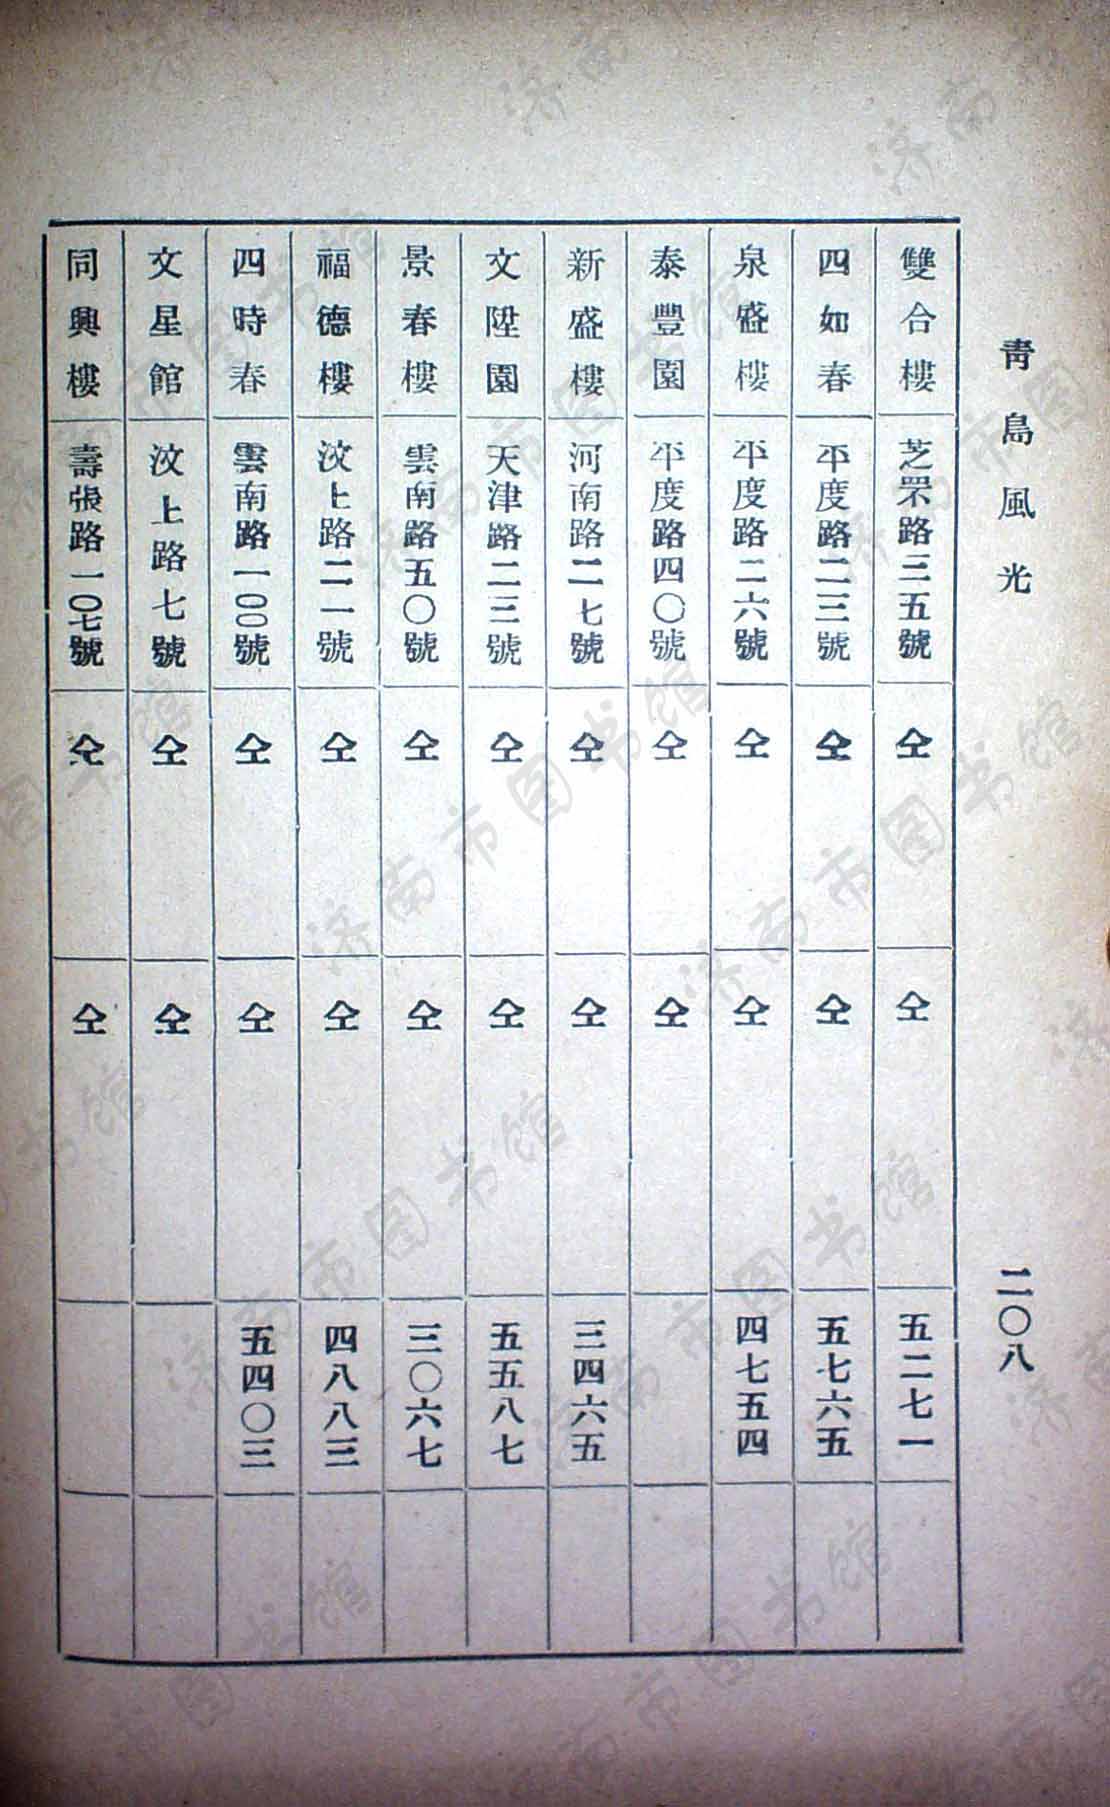 青島風光
二〇八
雙合樓 芝罘路三五號 仝 仝 五二七一
四如春 平度路二三號 仝 仝 五七六五
泉盛樓 平度路二六號 仝 仝 四七五四
泰豐園 平度路四〇號 仝 仝
新盛樓 河南路二七號 仝 仝 三四六五
文陞園 天津路二三號 仝 仝 五五八七
景春樓 雲南路五〇號 仝 仝 三〇六七
福德樓 汶上路二一號 仝 仝 四八八三
四時春 雲南路一〇〇號 仝 仝 五四〇三
文星館 汶上路七號 仝 仝
同興樓 壽張路一〇七號 仝 仝
济南市图书馆